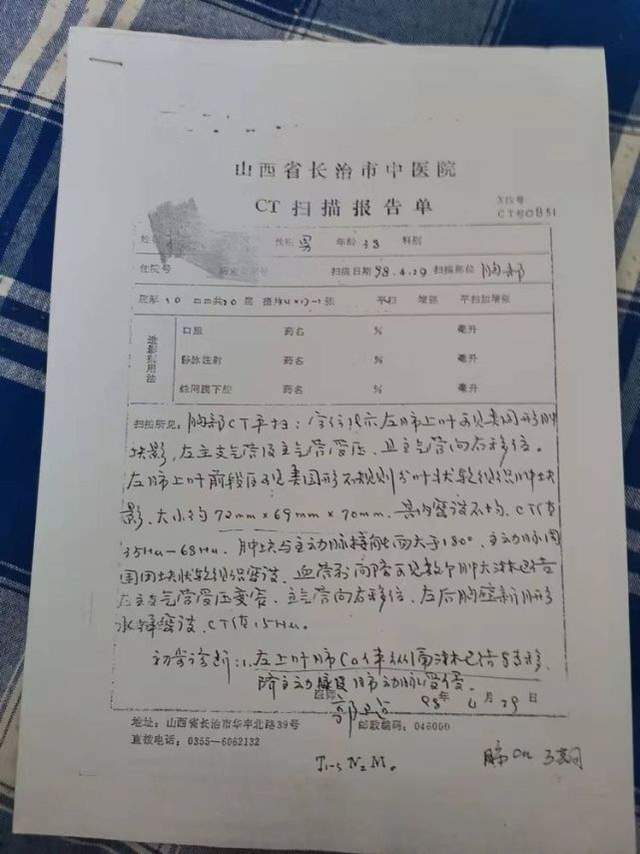 山西省长治市中医院
CT 扫描报告单
X线号
CT号0851
性别 男 年龄 38 科别
住院号 扫描日期 98.4.29 扫描部位 胸部
层厚 10 mm共20层 平扫 增强 平扫加增强
造影剂用法
口服 药名 % 毫升
静脉注射 药名 % 毫升
蛛网膜下腔 药名 % 毫升
扫描所见: 胸部CT平扫: 定位片示左肺上叶可见类圆形肿
块影, 左主支气管及主气管受压, 且主气管向右移位。
左肺上叶前段区可见类圆形不规则分叶状软组织肿块
影, 大小约 72mm×69mm×70mm. 其内密度不均, CT值
35Hu-68Hu. 肿块与主动脉接触面大于180°, 主动脉周
围团块状软组织密度, 血管前间隙可见数个肿大淋巴结
左主支气管受压变窄, 主气管向右移位, 左后胸壁新月形
水样密度, CT值15Hu。
初步诊断: 1. 左上叶肺Ca伴纵隔淋巴结转移,
降主动脉及肺动脉受侵。
医师 98年 4月 29日
地址: 山西省长治市华丰北路39号 邮政编码: 046000
直拨电话: 0355-6062132
N₂ M₀
肺Ca